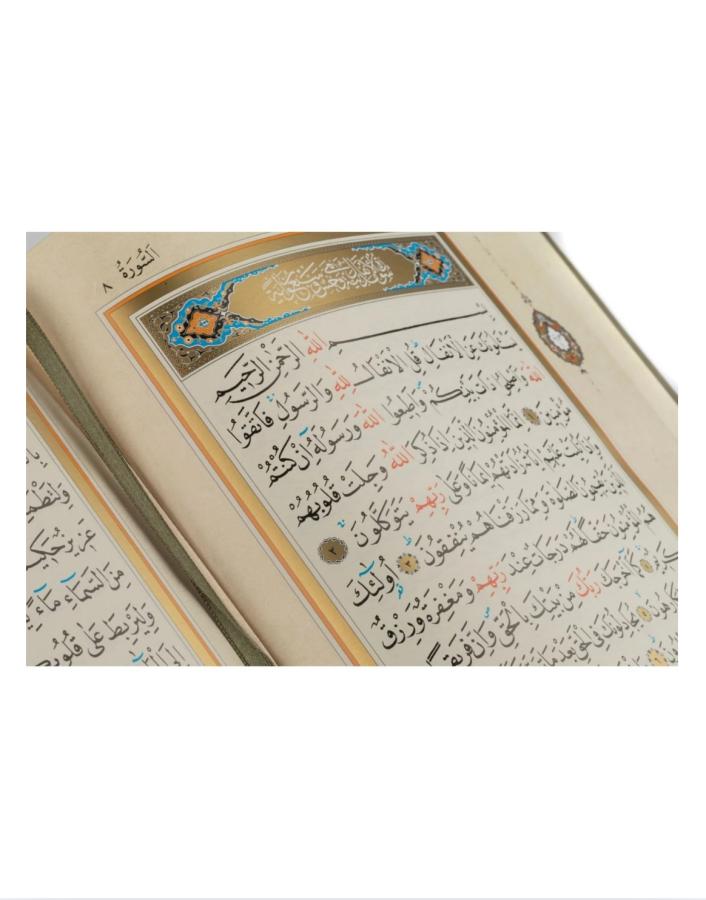 اَلسُّورَةُ ٨
بِسْمِ اللهِ الرَّحْمٰنِ الرَّحِيمِ
يَسْـَٔلُونَكَ عَنِ الْاَنْفَالِ قُلِ الْاَنْفَالُ لِلّٰهِ وَالرَّسُولِ فَاتَّقُوا
اللهَ وَاَصْلِحُوا ذَاتَ بَيْنِكُمْ وَاَطِيعُوا اللهَ وَرَسُولَهُٓ اِنْ كُنْتُمْ
مُؤْمِنِينَ ١ اِنَّمَا الْمُؤْمِنُونَ الَّذِينَ اِذَا ذُكِرَ اللهُ وَجِلَتْ قُلُوبُهُمْ
وَاِذَا تُلِيَتْ عَلَيْهِمْ اٰيَاتُهُ زَادَتْهُمْ اِيمَانًا وَعَلٰى رَبِّهِمْ يَتَوَكَّلُونَ ٢
اَلَّذِينَ يُقِيمُونَ الصَّلٰوةَ وَمِمَّا رَزَقْنَاهُمْ يُنْفِقُونَ ٣ اُولٰٓئِكَ
هُمُ الْمُؤْمِنُونَ حَقًّا لَهُمْ دَرَجَاتٌ عِنْدَ رَبِّهِمْ وَمَغْفِرَةٌ وَرِزْقٌ
كَرِيمٌ ٤ كَمَٓا اَخْرَجَكَ رَبُّكَ مِنْ بَيْتِكَ بِالْحَقِّ وَاِنَّ فَرِيقًا
يُجَادِلُونَكَ فِي الْحَقِّ بَعْدَ مَا
عَزِيزٌ حَكِيمٌ
مِنَ السَّمَٓاءِ مَٓاءً
وَلِيَرْبِطَ عَلٰى